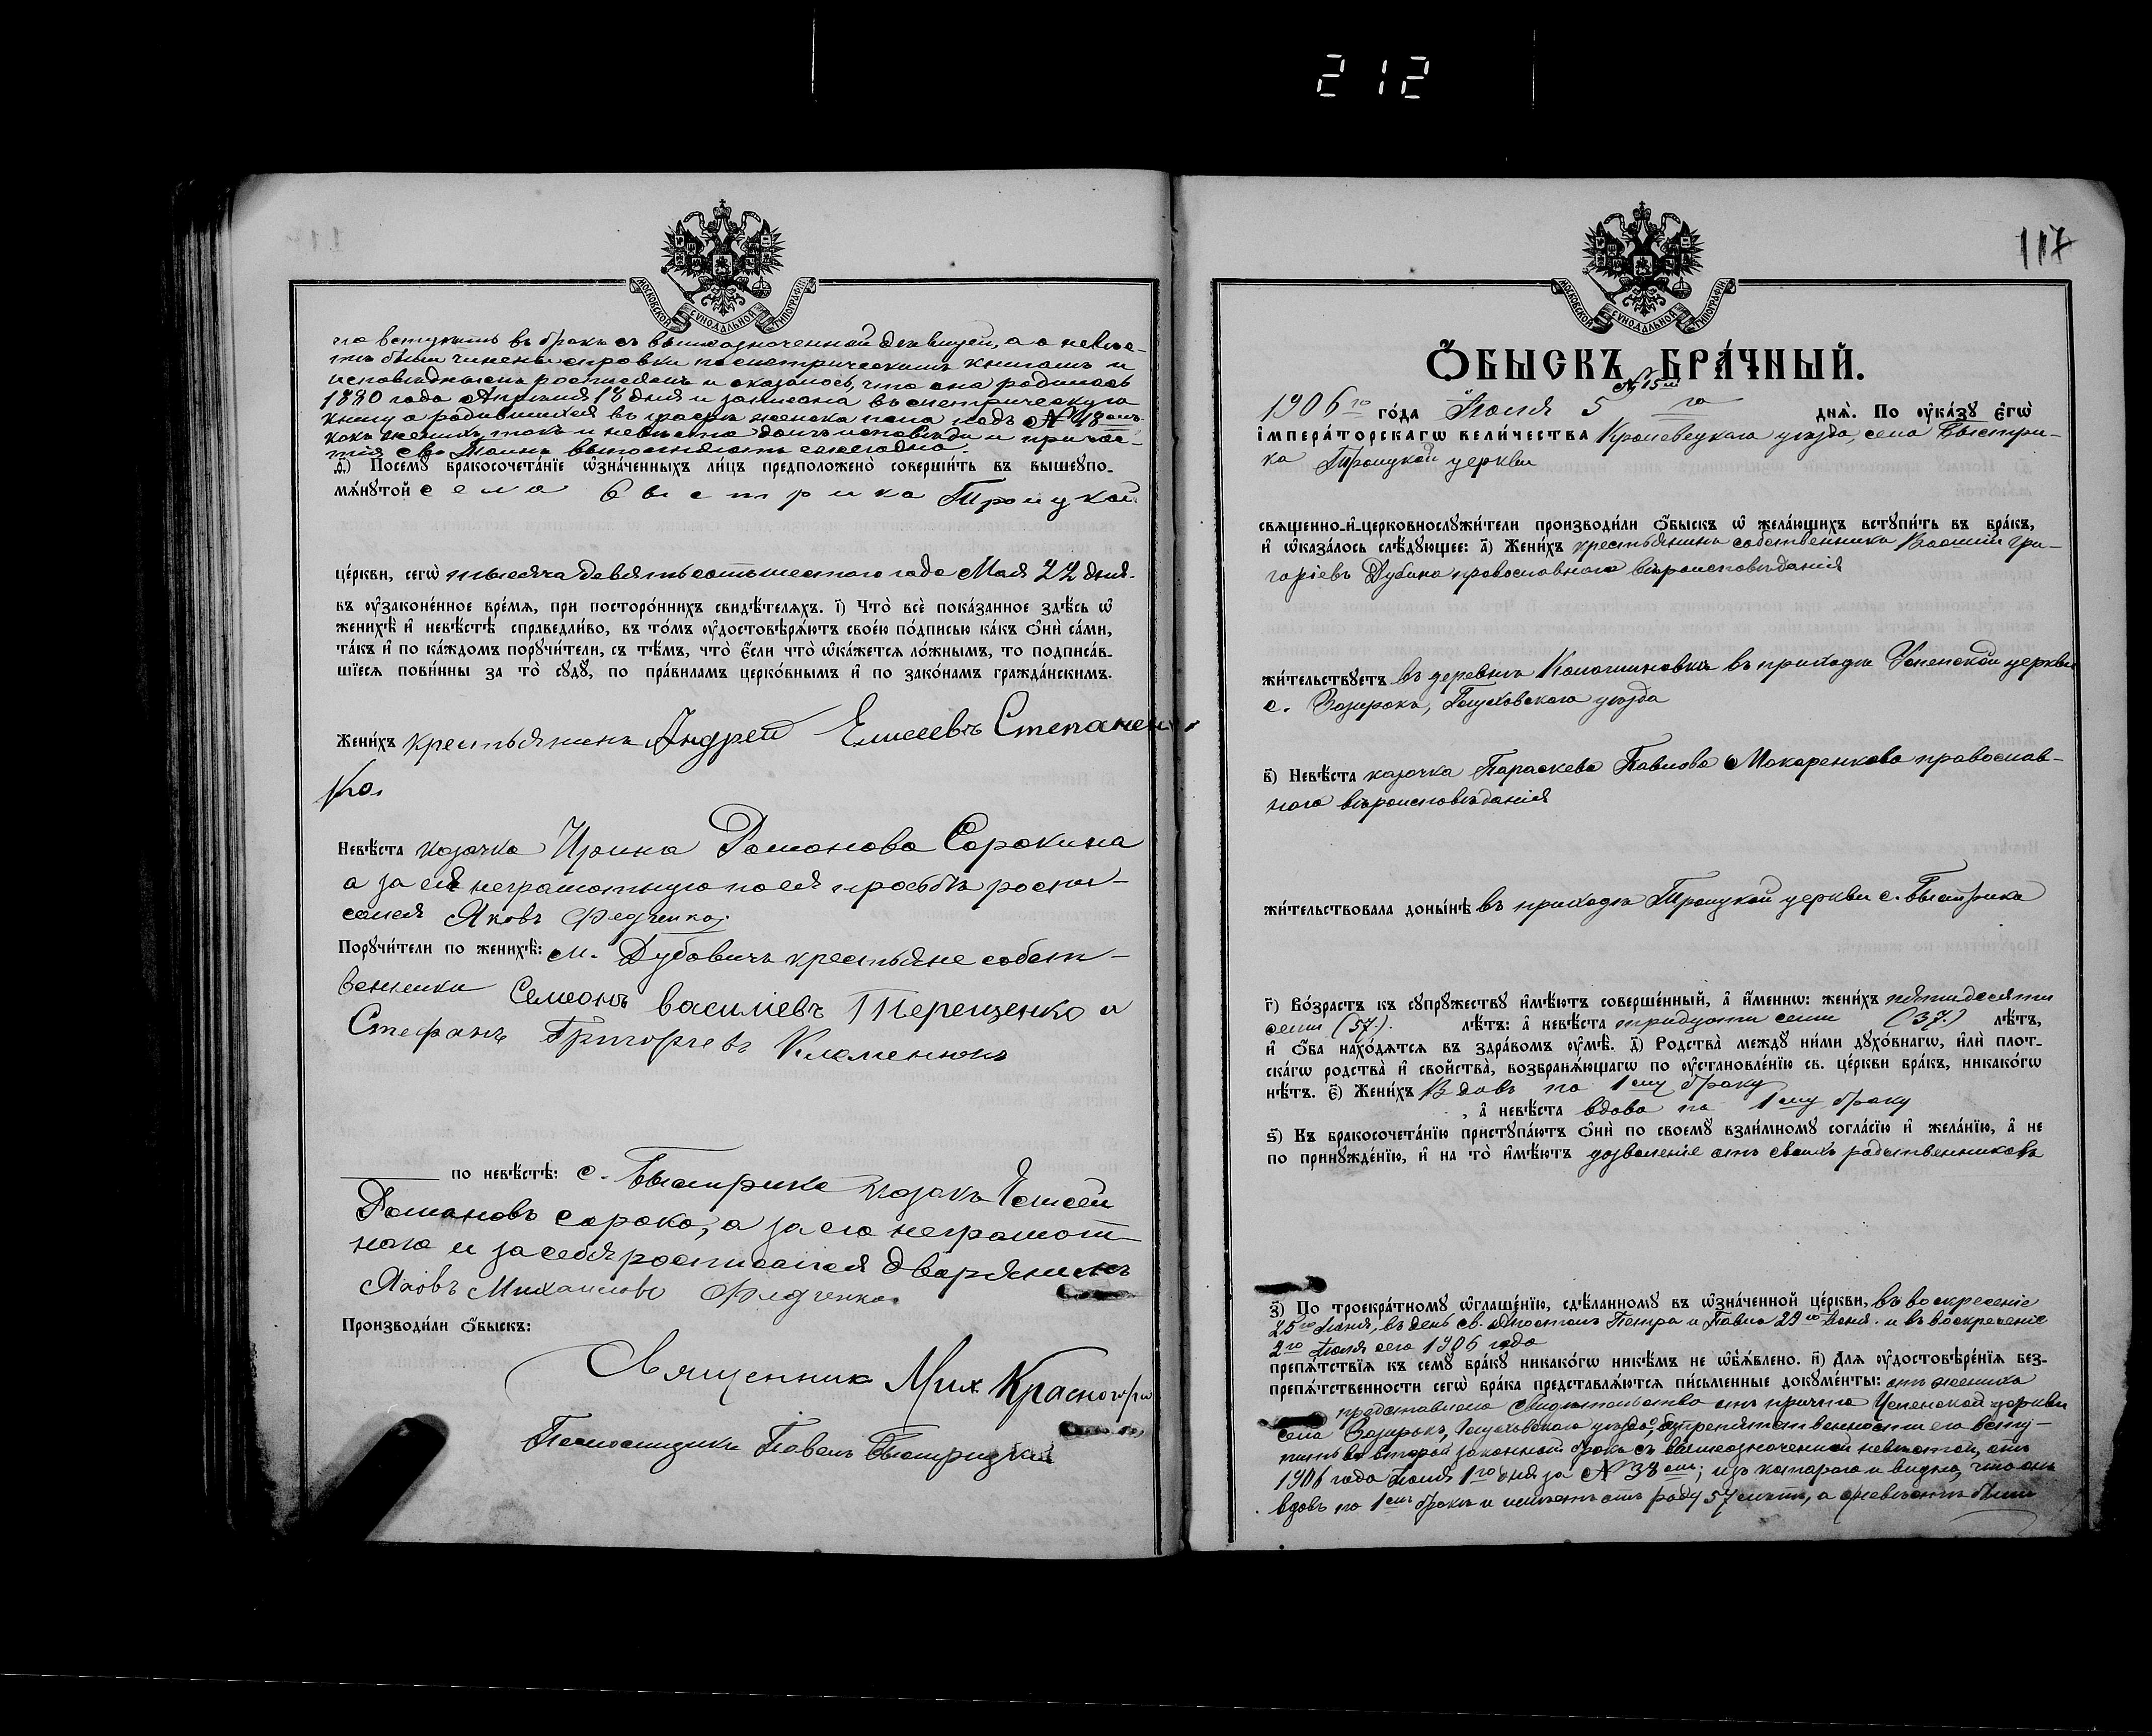 212
МОСКОВСКОЙ СУНОДАЛЬНОЙ ТИПОГРАФІИ
го вступить въ бракъ съ вышеозначенной дѣвицей, а о невѣс-
тѣ были чинены справки по метрическимъ книгамъ и
исповѣднымъ росписямъ и оказалось, что она родилась
1880 года Апрѣля 18 дня и записана въ метрическую
книгу о родившихся въ графѣ женска пола подъ № 48омъ
какъ женихъ, такъ и невѣста долгъ исповѣди и причас-
тія Св. Таинъ выполняютъ ежегодно.
ѳ҃) Посемꙋ̀ бракосочета́нїе ѡ҆зна́ченныхъ ли́цъ предположено̀ соверши́ть въ вышеупо-
мѧ́нꙋтой села Быстрика Троицкой
це́ркви, сегѡ̀ тысяча девятьсотъ шестого года Мая 22 дня.
въ ᲂу҆зако́ненное вре́мѧ, при посторо́ннихъ свидѣ́телѧхъ. і҃) Что̀ всѐ пока́занное здѣ́сь ѡ҆
женихѣ̀ и҆ невѣ́стѣ справедли́во, въ то́мъ ᲂу҆достовѣрѧ́ютъ свое́ю по́дписью ка́къ ѻ҆нѝ са́ми,
та́къ и҆ по ка́ждомъ порꙋчи́тели, съ тѣ́мъ, что̀ є҆́сли что̀ ѡ҆ка́жется ло́жнымъ, то подписа́в-
шїеся пови́нны за то̀ сꙋдꙋ̀, по пра́виламъ церко́внымъ и҆ по зако́намъ гражда́нскимъ.
Жени́хъ крестьянинъ Андрей Елисеевъ Степанен
ко.
Невѣ́ста козачка Ирина Романова Сорокина
а за ея неграмотную по ея просьбѣ роспи-
сался Яковъ Федченко.
Порꙋчи́тели по женихѣ̀: м. Дубовичъ крестьяне собст-
венники Семонъ васильевъ Терещенко а
Стефанъ Григорьевъ Клеменюкъ
по невѣ́стѣ: с. Быстрика козакъ Елисей
Романовъ сорока, а за его неграмот-
наго и за себя росписался дворянинъ
Яковъ Михаиловъ Федченко
Производи́ли ѻ҆́быскъ:
Священникъ Мих Красног
Псаломщикъ Павелъ Быстрицкій
117
МОСКОВСКОЙ СУНОДАЛЬНОЙ ТИПОГРАФІИ
Ѻ҆́БЫСКЪ БРА́ЧНЫЙ.
№ 15й
1906го го́да Іюля 5го днѧ̀. По ᲂу҆ка́зꙋ є҆гѡ̀
і҆мпера́торскагѡ вели́чества Кролевецкаго уѣзда, села Быстри-
ка Троицкой церкви
свѧщенно-и҆-церковнослꙋжи́тели производи́ли ѻ҆́быскъ ѡ҆ жела́ющихъ встꙋпи́ть въ бра́къ,
и҆ ѡ҆каза́лось слѣ́дꙋющее: а҃) Жени́хъ крестьянинъ собственникъ Василій Гри-
горіевъ Дубина православнаго вѣроисповѣданія
жи́тельствꙋетъ въ деревнѣ Колошиновкѣ въ приходѣ Успенской церкви
с. Зазирокъ, Глуховскаго уѣзда
в҃) Невѣ́ста козачка Параскева Павлова Макаренкова православ-
наго вѣроисповѣданія
жи́тельствовала доны́нѣ въ приходѣ Троицкой церкви с. Быстрика
г҃) Во́зрастъ къ сꙋпрꙋ́жествꙋ и҆мѣ́ютъ соверше́нный, а҆ и҆́меннѡ: жени́хъ пятидесяти
семи (57.) лѣ́тъ: а҆ невѣ́ста тридцати семи (37.) лѣ́тъ,
и҆ ѻ҆́ба нахо́дѧтся въ здра́вомъ ᲂу҆мѣ̀. д҃) Родства̀ междꙋ ни́ми дꙋхо́внагѡ, и҆лѝ плот-
ска́гѡ родства̀ и҆ свойства̀, возбранѧ́ющагѡ по ᲂу҆становле́нїю св. це́ркви бра́къ, никако́гѡ
нѣ́тъ. є҃) Жени́хъ Вдовъ по 1ему браку
, а҆ невѣ́ста вдова по 1ему браку
ѕ҃) Къ бракосочета́нїю пристꙋпа́ютъ ѻ҆нѝ по своемꙋ̀ взаи́мномꙋ согла́сїю и҆ жела́нїю, а҆ не
по принꙋжде́нїю, и҆ на то̀ и҆мѣ́ютъ дозволеніе отъ своихъ родственниковъ
з҃) По троекра́тномꙋ ѡ҆глаше́нїю, сдѣ́ланномꙋ въ ѡ҆зна́ченной це́ркви, въ воскресеніе
25го Іюня, въ день св. Апостолъ Петра и Павла 29го Іюня и въ воскресеніе
2го Іюля сего 1906 года
препѧ́тствїѧ къ семꙋ̀ бра́кꙋ никако́гѡ никѣ́мъ не ѡ҆б̾ѧ́влено. и҃) Длѧ ᲂу҆достовѣре́нїѧ без-
препѧ́тственности сегѡ̀ бра́ка представлѧ́ются пи́сьменные докꙋме́нты: отъ жениха
представлено свидѣтельство отъ причта Успенской церкви
села Зазирокъ, Глуховскаго уѣзда, о безпрепятственности его всту-
пить во второй законный бракъ съ вышеозначенной невѣстой, отъ
1906 года Іюля 1го дня за № 38мъ; изъ котораго и видно, что онъ
вдовъ по 1емъ бракѣ и имѣетъ отъ роду 57 лѣтъ, а о невѣстѣ были